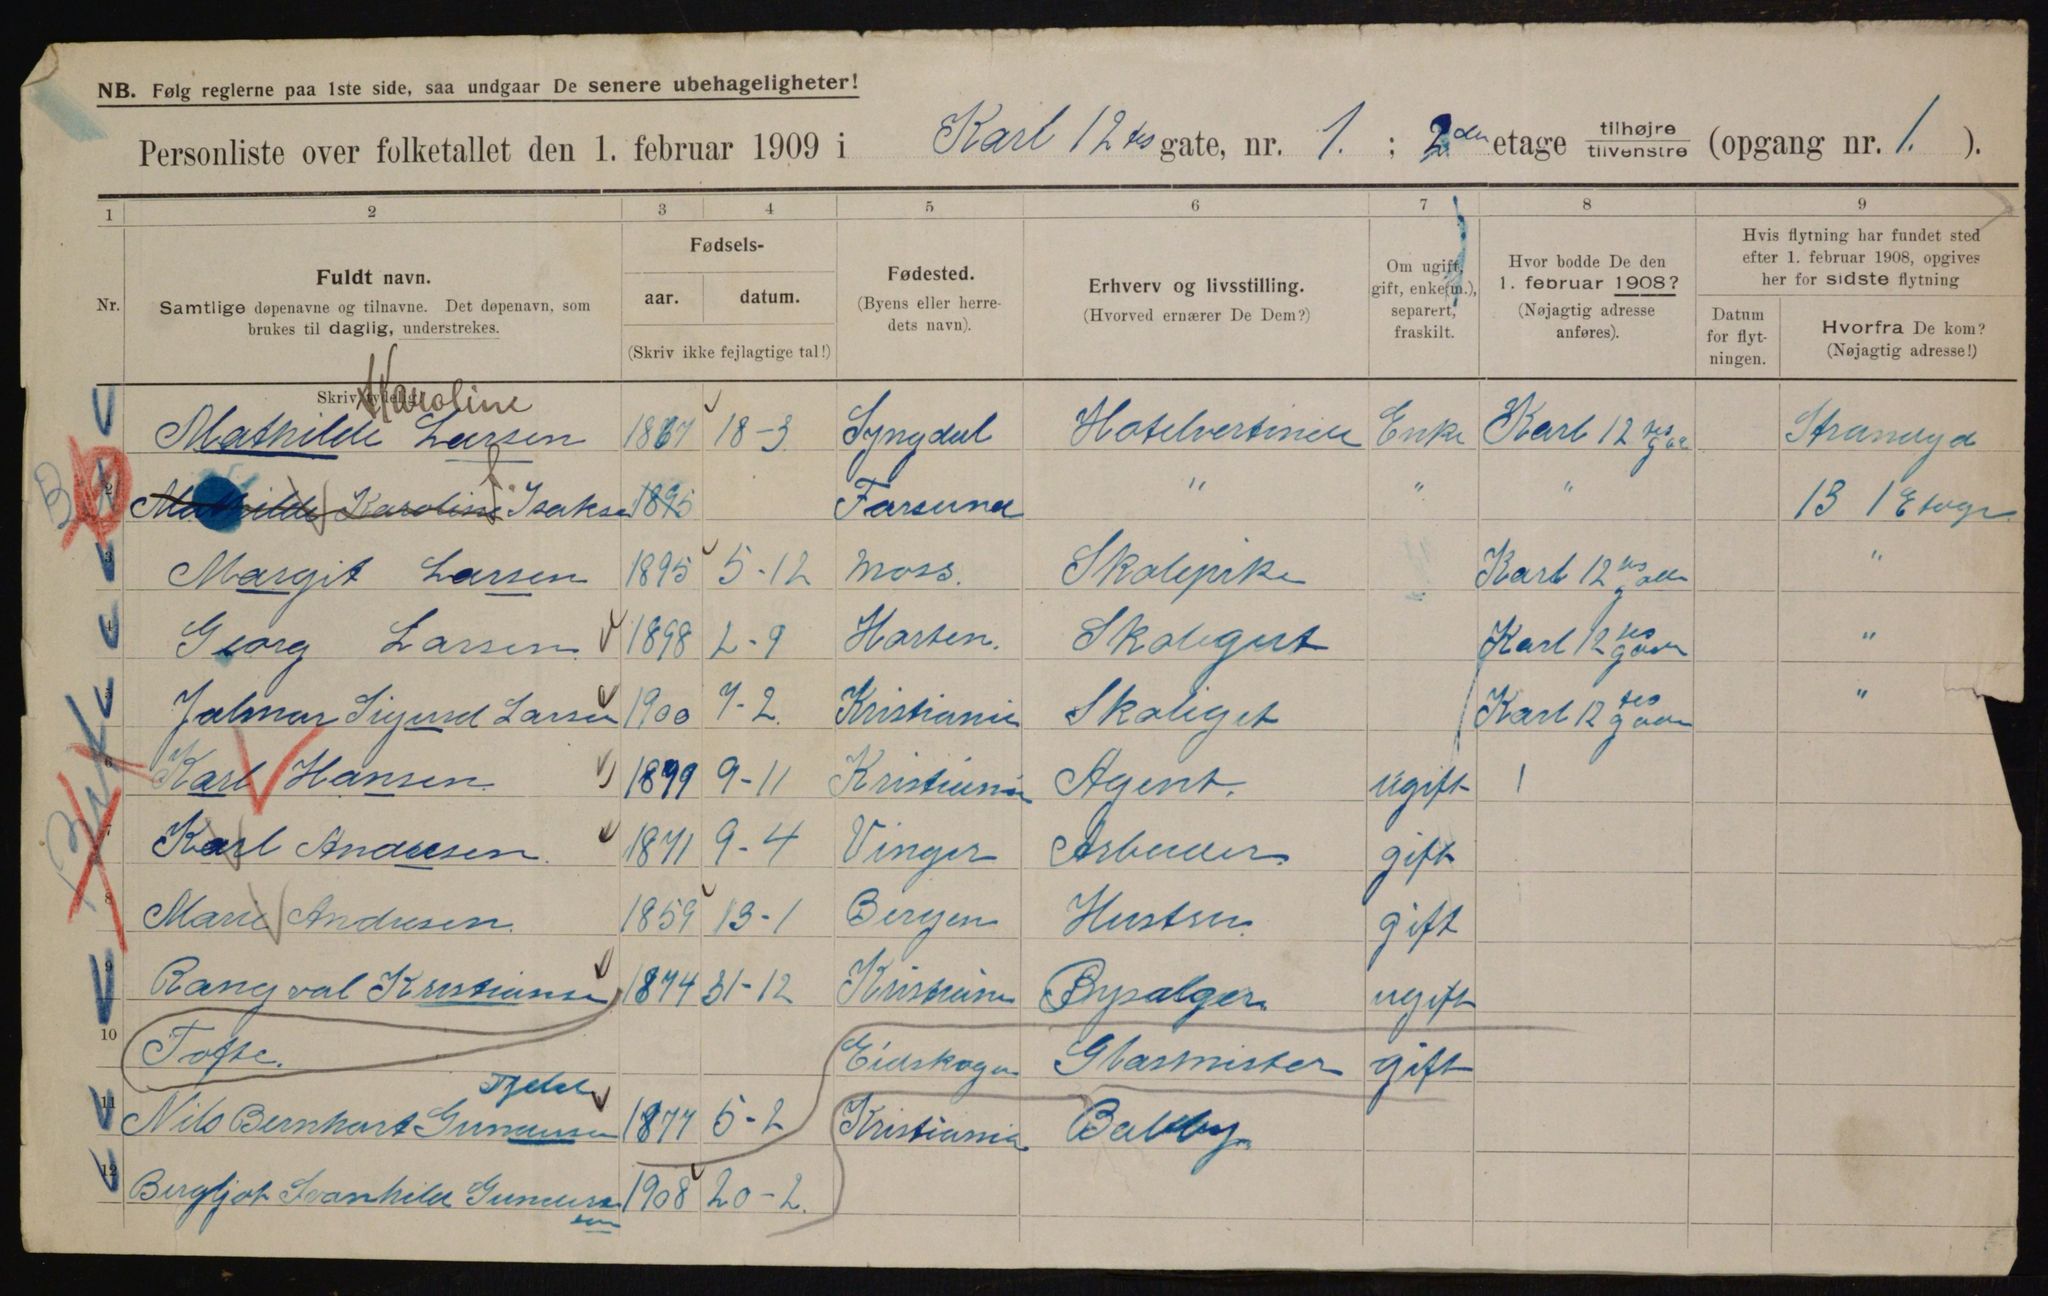 NB. Følg reglerne paa 1ste side, saa undgaar De senere ubehageligheter!
Personliste over folketallet den 1. februar 1909 i Karl 12 tes gate, nr. 1. ; 2 den etage tilhøjre tilvenstre (opgang nr. 1. ).
1 2 3 4 5 6 7 8 9
Nr.
Fuldt navn.
Samtlige døpenavne og tilnavne. Det døpenavn, som
brukes til daglig, understrekes.
Skriv tydelig!
Fødsels-
aar. datum.
(Skriv ikke fejlagtige tal!)
Fødested.
(Byens eller herre-
dets navn).
Erhverv og livsstilling.
(Hvorved ernærer De Dem?)
Om ugift,
gift, enke(m.),
separert,
fraskilt.
Hvor bodde De den
1. februar 1908?
(Nøjagtig adresse
anføres).
Hvis flytning har fundet sted
efter 1. februar 1908, opgives
her for sidste flytning
Datum
for flyt-
ningen.
Hvorfra De kom?
(Nøjagtig adresse!)
Karoline
Mathilde Larsen 1867 18-3 Lyngdal Hotelvertinde Enke Karl 12 tes
2 Mathilde Karoline Isaksen 1895 Farsund " " " 13 1 Etage
3 Margit Larsen 1895 5-12 Moss. Skolepike Karl 12 tes "
4 Georg Larsen 1898 2-9 Horten. Skolegut Karl 12 tes "
5 Jalmar Sigurd Larsen 1900 7-2. Kristiania Skoleget Karl 12 tes "
6 Karl Hansen. 1899 9-11 Kristiania Agent. ugift
7 Karl Andersen. 1871 9-4 Vinger Arbeider. gift
8 Marie Andresen. 1859 13-1 Bergen Hustru. gift
9 Rangval Kristiansen 1874 31-12 Kristiania Bysælger. ugift
10 Tofte. Eidskogen Glasmester gift
11 Nils Bernhart Gundersen 1877 5-2 Kristiania
12 Bergljot Svanhild Gunders 1908 20-2.
sen